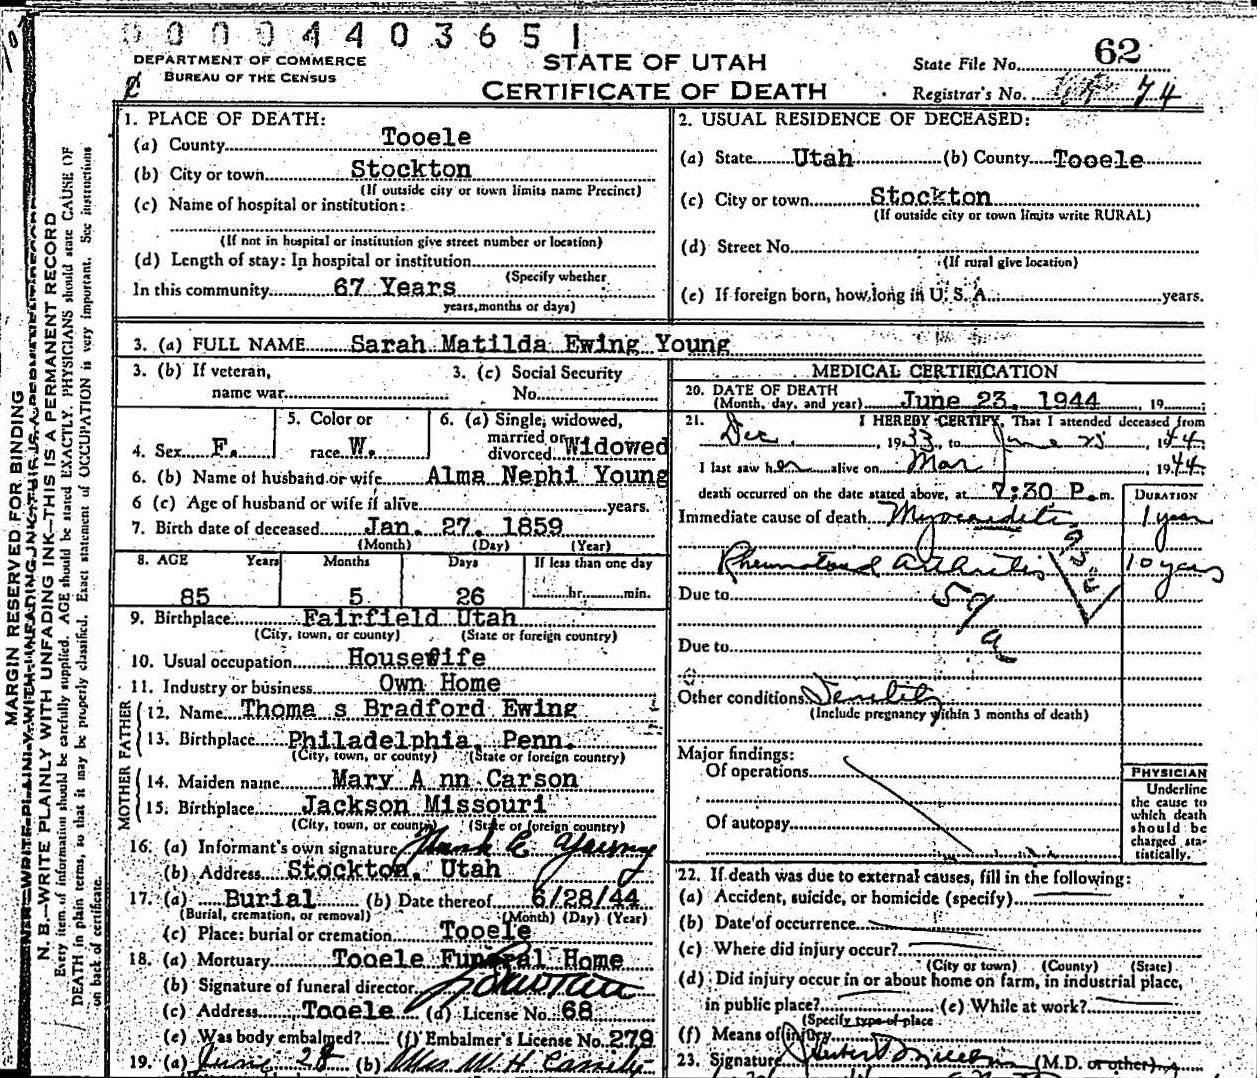 00004403651
DEPARTMENT OF COMMERCE
BUREAU OF THE CENSUS
STATE OF UTAH
CERTIFICATE OF DEATH
State File No. 62
Registrar's No. 74
MARGIN RESERVED FOR BINDING
N. B.—WRITE PLAINLY WITH UNFADING INK—THIS IS A PERMANENT RECORD
Every item of information should be carefully supplied. AGE should be stated EXACTLY. PHYSICIANS should state CAUSE OF
DEATH in plain terms, so that it may be properly classified. Exact statement of OCCUPATION is very important. See instructions
on back of certificate.
1. PLACE OF DEATH:
(a) County Tooele
(b) City or town Stockton
(If outside city or town limits name Precinct)
(c) Name of hospital or institution:
(If not in hospital or institution give street number or location)
(d) Length of stay: In hospital or institution
(Specify whether
In this community 67 Years
years, months or days)
2. USUAL RESIDENCE OF DECEASED:
(a) State Utah (b) County Tooele
(c) City or town Stockton
(If outside city or town limits write RURAL)
(d) Street No.
(If rural give location)
(e) If foreign born, how long in U. S. A. years.
3. (a) FULL NAME Sarah Matilda Ewing Young
3. (b) If veteran, name war
3. (c) Social Security No.
4. Sex F.
5. Color or race W.
6. (a) Single, widowed, married or divorced Widowed
6. (b) Name of husband or wife Alma Nephi Young
6 (c) Age of husband or wife if alive years.
7. Birth date of deceased Jan. 27. 1859
(Month) (Day) (Year)
8. AGE Years Months Days If less than one day
85 5 26 hr. min.
9. Birthplace Fairfield Utah
(City, town, or county) (State or foreign country)
10. Usual occupation Housewife
11. Industry or business Own Home
FATHER
12. Name Thoma s Bradford Ewing
13. Birthplace Philadelphia, Penn.
(City, town, or county) (State or foreign country)
MOTHER
14. Maiden name Mary A nn Carson
15. Birthplace Jackson Missouri
(City, town, or county) (State or foreign country)
16. (a) Informant's own signature Young
(b) Address Stockton, Utah
17. (a) Burial (b) Date thereof 6/28/44
(Burial, cremation, or removal) (Month) (Day) (Year)
(c) Place: burial or cremation Tooele
18. (a) Mortuary Tooele Funeral Home
(b) Signature of funeral director
(c) Address Tooele (d) License No. 68
(e) Was body embalmed? (f) Embalmer's License No. 279
19. (a) June 28 (b) Mrs W. H. Cassity
MEDICAL CERTIFICATION
20. DATE OF DEATH
(Month, day, and year) June 23, 1944, 19
21. I HEREBY CERTIFY, That I attended deceased from
Dec. 1933, to June 23, 1944
I last saw her alive on Mar, 1944
death occurred on the date stated above, at 7:30 P. m.
DURATION
Immediate cause of death Myocarditis 1 year
Rheumatoid arthritis 10 years
Due to 59
a
Due to
Other conditions Senility
(Include pregnancy within 3 months of death)
Major findings:
Of operations
Of autopsy
PHYSICIAN
Underline
the cause to
which death
should be
charged sta-
tistically.
22. If death was due to external causes, fill in the following:
(a) Accident, suicide, or homicide (specify)
(b) Date of occurrence
(c) Where did injury occur?
(City or town) (County) (State)
(d) Did injury occur in or about home on farm, in industrial place,
in public place? (e) While at work?
(Specify type of place
(f) Means of injury
23. Signature (M.D. or other)